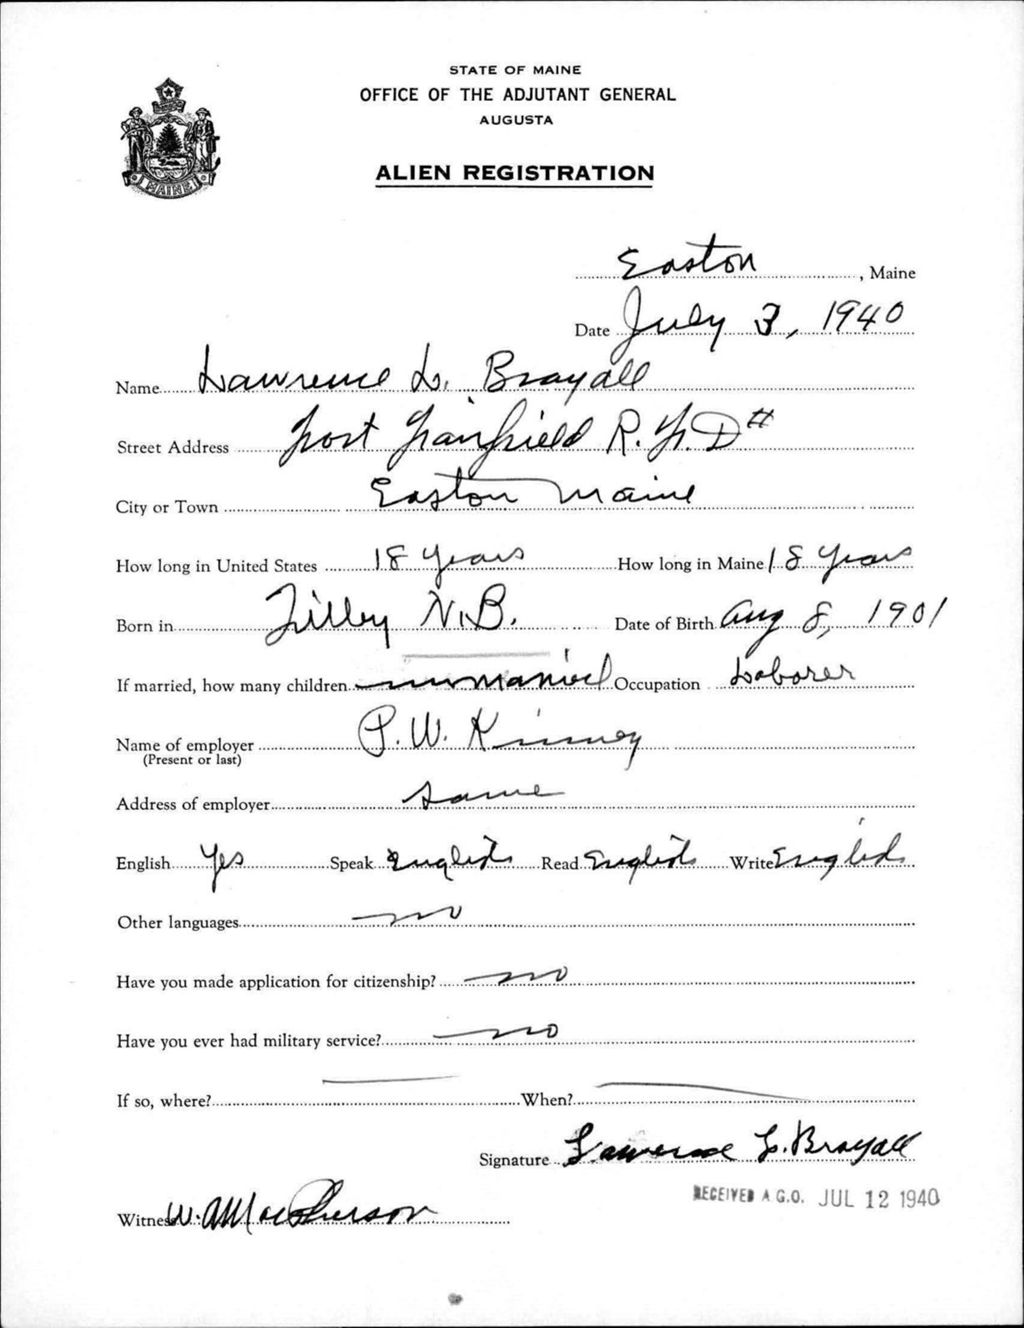 STATE OF MAINE
OFFICE OF THE ADJUTANT GENERAL
AUGUSTA
ALIEN REGISTRATION
MAINE
Easton, Maine
Date July 3, 1940
Name Lawrence L. Brayall
Street Address Fort Fairfield R.F.D #
City or Town Easton Maine
How long in United States 18 years How long in Maine 18 years
Born in Tilley N.B. Date of Birth Aug 8, 1901
If married, how many children Occupation Laborer
Name of employer P. W. Kinney
(Present or last)
Address of employer Same
English Yes Speak English Read English Write English
Other languages no
Have you made application for citizenship? no
Have you ever had military service? no
If so, where? When?
Signature Lawrence L. Brayall
RECEIVED A.G.O. JUL 12 1940
Witness W. A. MacPherson